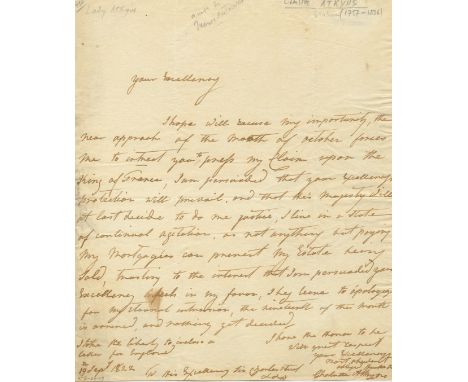 Lady Atkyns
ATKYNS
(1757-1836)
Your Excellency
I hope will excuse my importunity, the
near approach of the month of october forces
me to intreat you to press my Claim upon the
King of France, I am persuaded that your Excellency's
protection will prevail, and that his Majesty will
at last decide to do me justice, I live in a state
of continual agitation, as nothing but paying
My Mortgages can prevent my Estate being
Sold, trusting to the interest that I am persuaded your
Excellency feels in my favor, I beg leave to apologize
for my intrusion, the nineteenth of the month
is arrived, and nothing yet decided
I take the liberty to inclose a
letter for England
I have the honor to be
with great respect
your Excellency's
most obliged
Charlotte Atkyns
19 Sept 1822
To His Excellency Sir Charles Stuart